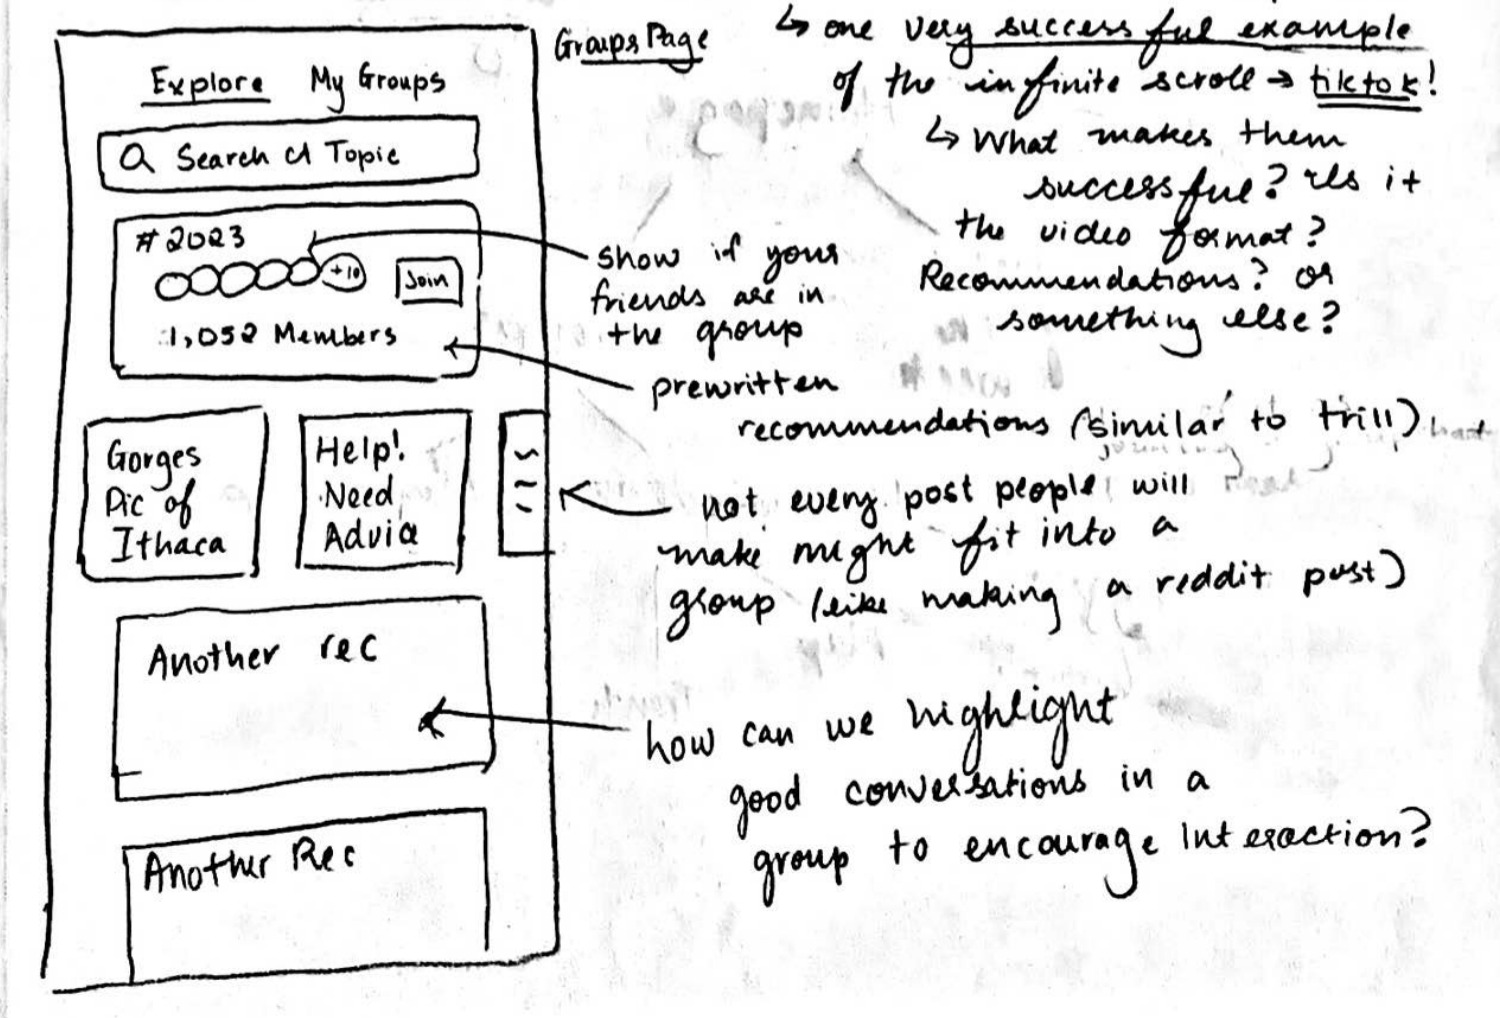 Groups Page
Explore My Groups
Search a Topic
#2023
+10
Join
1,052 Members
Gorges
Pic of
Ithaca
Help!
Need
Advice
Another rec
Another Rec
↳ one very successful example
of the infinite scroll → tiktok!
↳ What makes them
successful? Is it
the video format?
Recommendations? or
something else?
show if your
friends are in
the group
prewritten
recommendations (similar to trill)
not every post people will
make might fit into a
group (like making a reddit post)
how can we highlight
good conversations in a
group to encourage interaction?